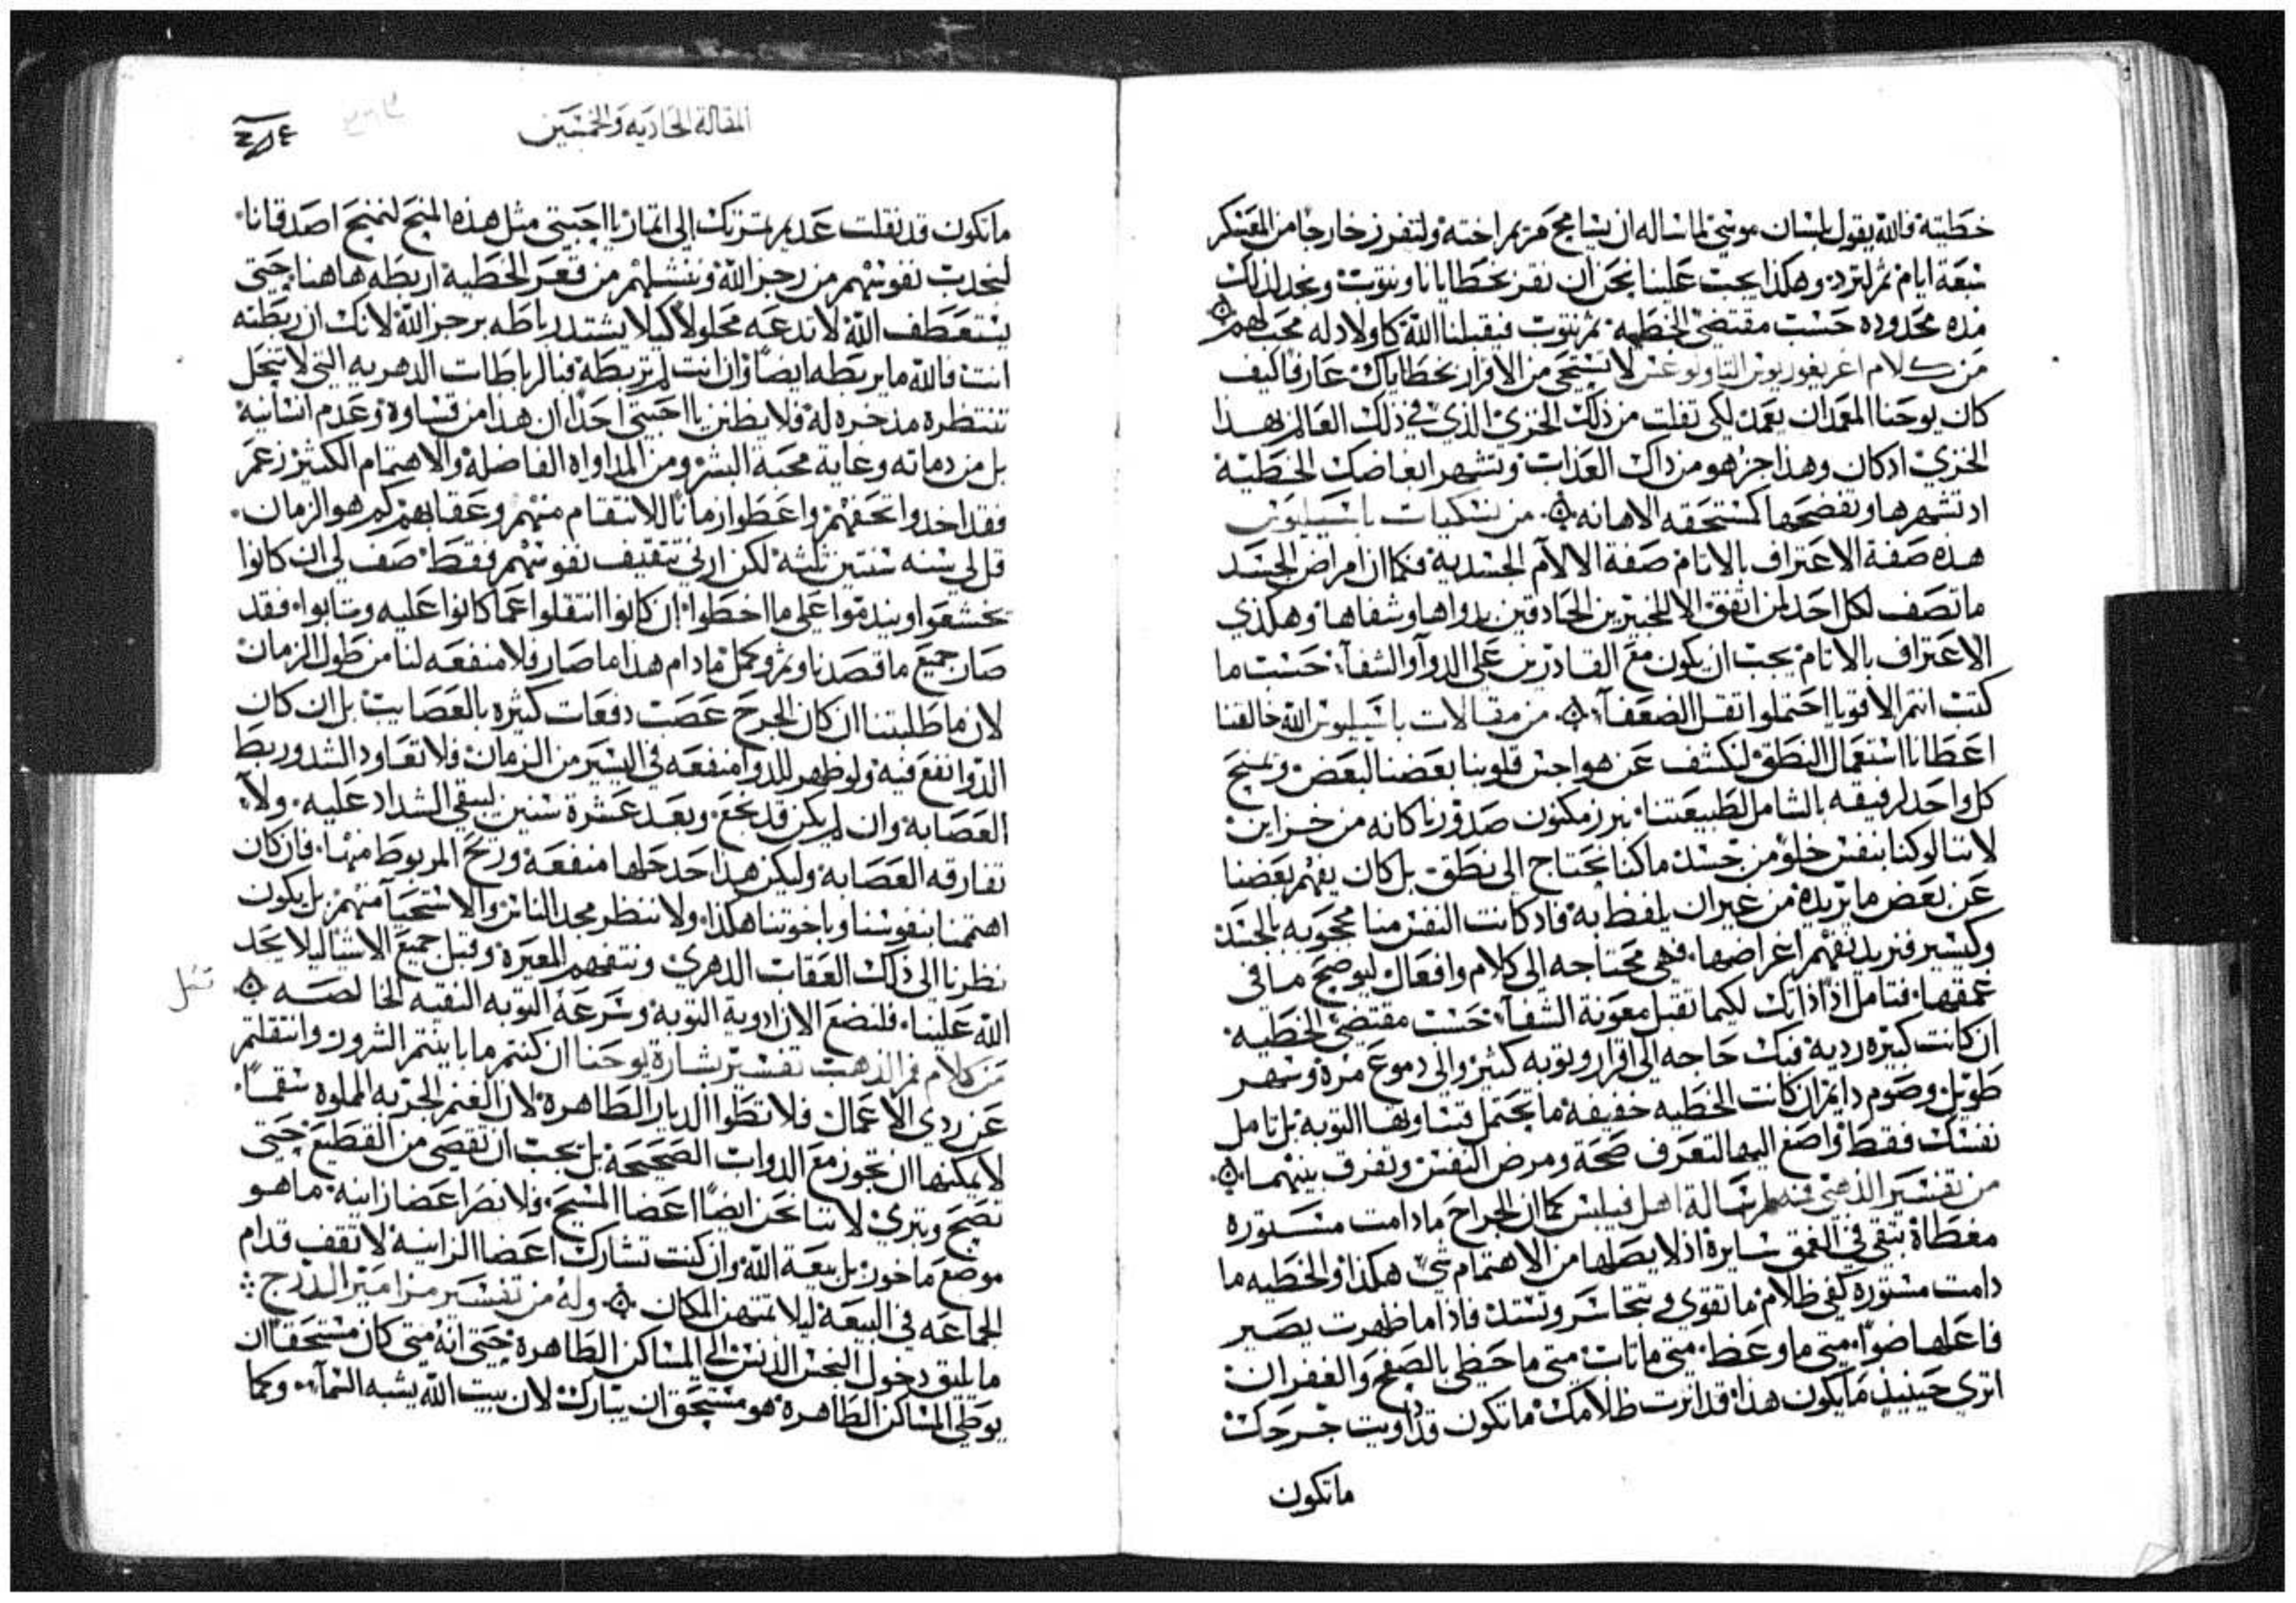 خطيته فالله يقول بلسان موسى لما ساله ان يسامح مريم اخته ولتفرز خارجا من المعسكر
سبعة ايام ثم لترد وهكذا يجب علينا نحن ان نقر بخطايانا ونتوب ونجد لذلك
مده محدوده حسب مقتضى الخطيه ثم نتوب فيقبلنا الله كاولاد له محبتهم
من كلام اغريغوريوس التاولوغس لا تستحي من الاقرار بخطاياك عارفا كيف
كان يوحنا المعمدان يعمد لكي تفلت من ذلك الخزى الذي في ذلك العالم بهذا
الخزي اذ كان وهذا جز هو من ذاك العذاب وتشهر ابغاضك الخطيئة
اذ تشهرها وتفضحها كمستحقه الاهانه من نسكيات باسيليوس
هذه صفة الاعتراف بالاثام صفة الالام الجسديه فكما ان امراض الجسد
ما تصف لكل احد لمن اتفق الا للخبيرين الحادقين بدواها وشفاها وهكذي
الاعتراف بالاثام يجب ان يكون مع القادرين على الدوآ والشفآ حسب ما
كتب انتم الاقويا احتملوا ثقل الضعفآ من مقالات باسيليوس الله خالقنا
اعطانا استعمال النطق لنكشف عن هواجس قلوبنا بعضنا لبعض ونمنح
كل واحد لرفيقه بالشامل لطبيعتنا نبرز مكنون صدورنا كانه من خزاين
لاننا لو كنا بنفس خلو من جسد ما كنا نحتاج الى نطق بل كان يفهم بعضنا
عن بعض ما يريده من غير ان يلفظ به فاذ كانت النفس منا محجوبه بالجسد
وكستر فنريد نفهم اغراضها فهي محتاجه الى كلام وافعال ليوضح ما في
عمقها فتامل اذا ذاتك لكيما تقبل معونة الشفآ حسب مقتضى الخطيه
ان كانت كبيره رديه فبك حاجه الى اقرار وتوبه كثير والى دموع مرة وسهر
طويل وصوم دايم ان كانت الخطيه خفيفة ما يحتمل فتساويها التوبه بل تامل
نفسك فقط واصغ اليها لتعرف صحة ومرض النفس وتفرق بينهما
من تفسير الذهبي فمه لرسالة اهل فيلبس كما ان الجراح ما دامت مستوره
مغطاة تبقى في العمق سايرة اذ لا يصلها من الاهتمام شي هكذا والخطيه ما
دامت مستوره كفي ظلام ما تقوى وتتجاسر وتستد فاذا ما ظهرت يصير
فاعلها ضوا متى ما وعظ متى ما تاب متى ما حظي بالصفح والغفران
اترى حينيذ ما يكون هذا قد انرت ظلامك ما تكون قد داويت جرحك
ما تكون
المقالة الحاديه والخمسين
ما تكون قد نقلت عديم ثمرتك الى اثمار يا احبتي مثل هذه المنح لنمنح اصدقانا
لنجدب نفوسهم من رجز الله وننشلهم من قعر الخطية اربطه هاهنا حتى
يستعطف الله لا تدعه محلولا كيلا يشتد رباطه برجز الله لانك ان ربطته
انت فالله ما يربطه ايضا وان انت لم تربطه فالرباطات الدهريه التي لا تنحل
تنتظره مذخره له فلا يظنن يا احبتي احدا ان هذا من قساوة وعدم انسانية
بل من دماثه وغاية محبة البشر ومن المداواه الفاضلة والاهتمام الكثير زعم
فقد اخدوا تحفهم واعطوا زمانا للانتقام منهم وعقابهم كم هو الزمان
قل لي سنه سنتين ثلثه لكن ارني تثقيف نفوسهم فقط صف لي ان كانوا
تخشعوا وندموا على ما اخطوا ان كانوا انتقلوا عما كانوا عليه وتابوا فقد
صار جميع ما قصدنا وتم وكمل ما دام هذا ما صار فلا منفعه لنا من طول الزمان
لان ما طلبتنا ان كان الجرح عصب دفعات كثيره بالعصايب بل ان كان
الدوا نفع فيه ولو ظهر للدوا منفعه في اليسير من الزمان فلا تعاود الشد وربط
العصابة وان لم يكن قد نجع وبعد عشرة سنين ليبقى الشداد عليه ولا
تفارقه العصابه وليكن هذا حد حلها منفعة وربح المربوط منها فان كان
اهتممنا بنفوسنا وباخوتنا هكذا ولا ننظر مجد الناس والاستحيآ منهم بل يكون
نظرنا الى ذلك العقاب الدهري ونتفهم المعيرة وقبل جميع الاشيا ليلا يحد
الله علينا فلنضع الان ادوية التوبة وشرعة التوبه النقيه الخالصه
من كلام فم الذهب تفسير بشارة يوحنا ان كنتم ما باينتم الشرور وانتقلتم
عن ردي الاعمال فلا تطوا الديار الطاهرة لان الغنم الجربه المملوه سقما
لا يمكنها ان تجوز مع الدواب الصحيحة بل يجب ان تقصى من القطيع حتى
تصح وتبرئ لاننا نحن ايضا اعضا المسيح فلا نصر اعضا زانيه ما هو
موضع ماخور بل بيعة الله وان كنت تشارك اعضا الزانيه لا تقف قدام
الجماعه في البيعة ليلا تمتهن المكان وله من تفسير مزامير الدرج
ما يليق دخول النجس الدنس الى المساكن الطاهرة حتى انه متى كان مستحقا ان
يوطي المساكن الطاهرة هو مستحق ان يبارك لان بيت الله يشبه السمآ وكما